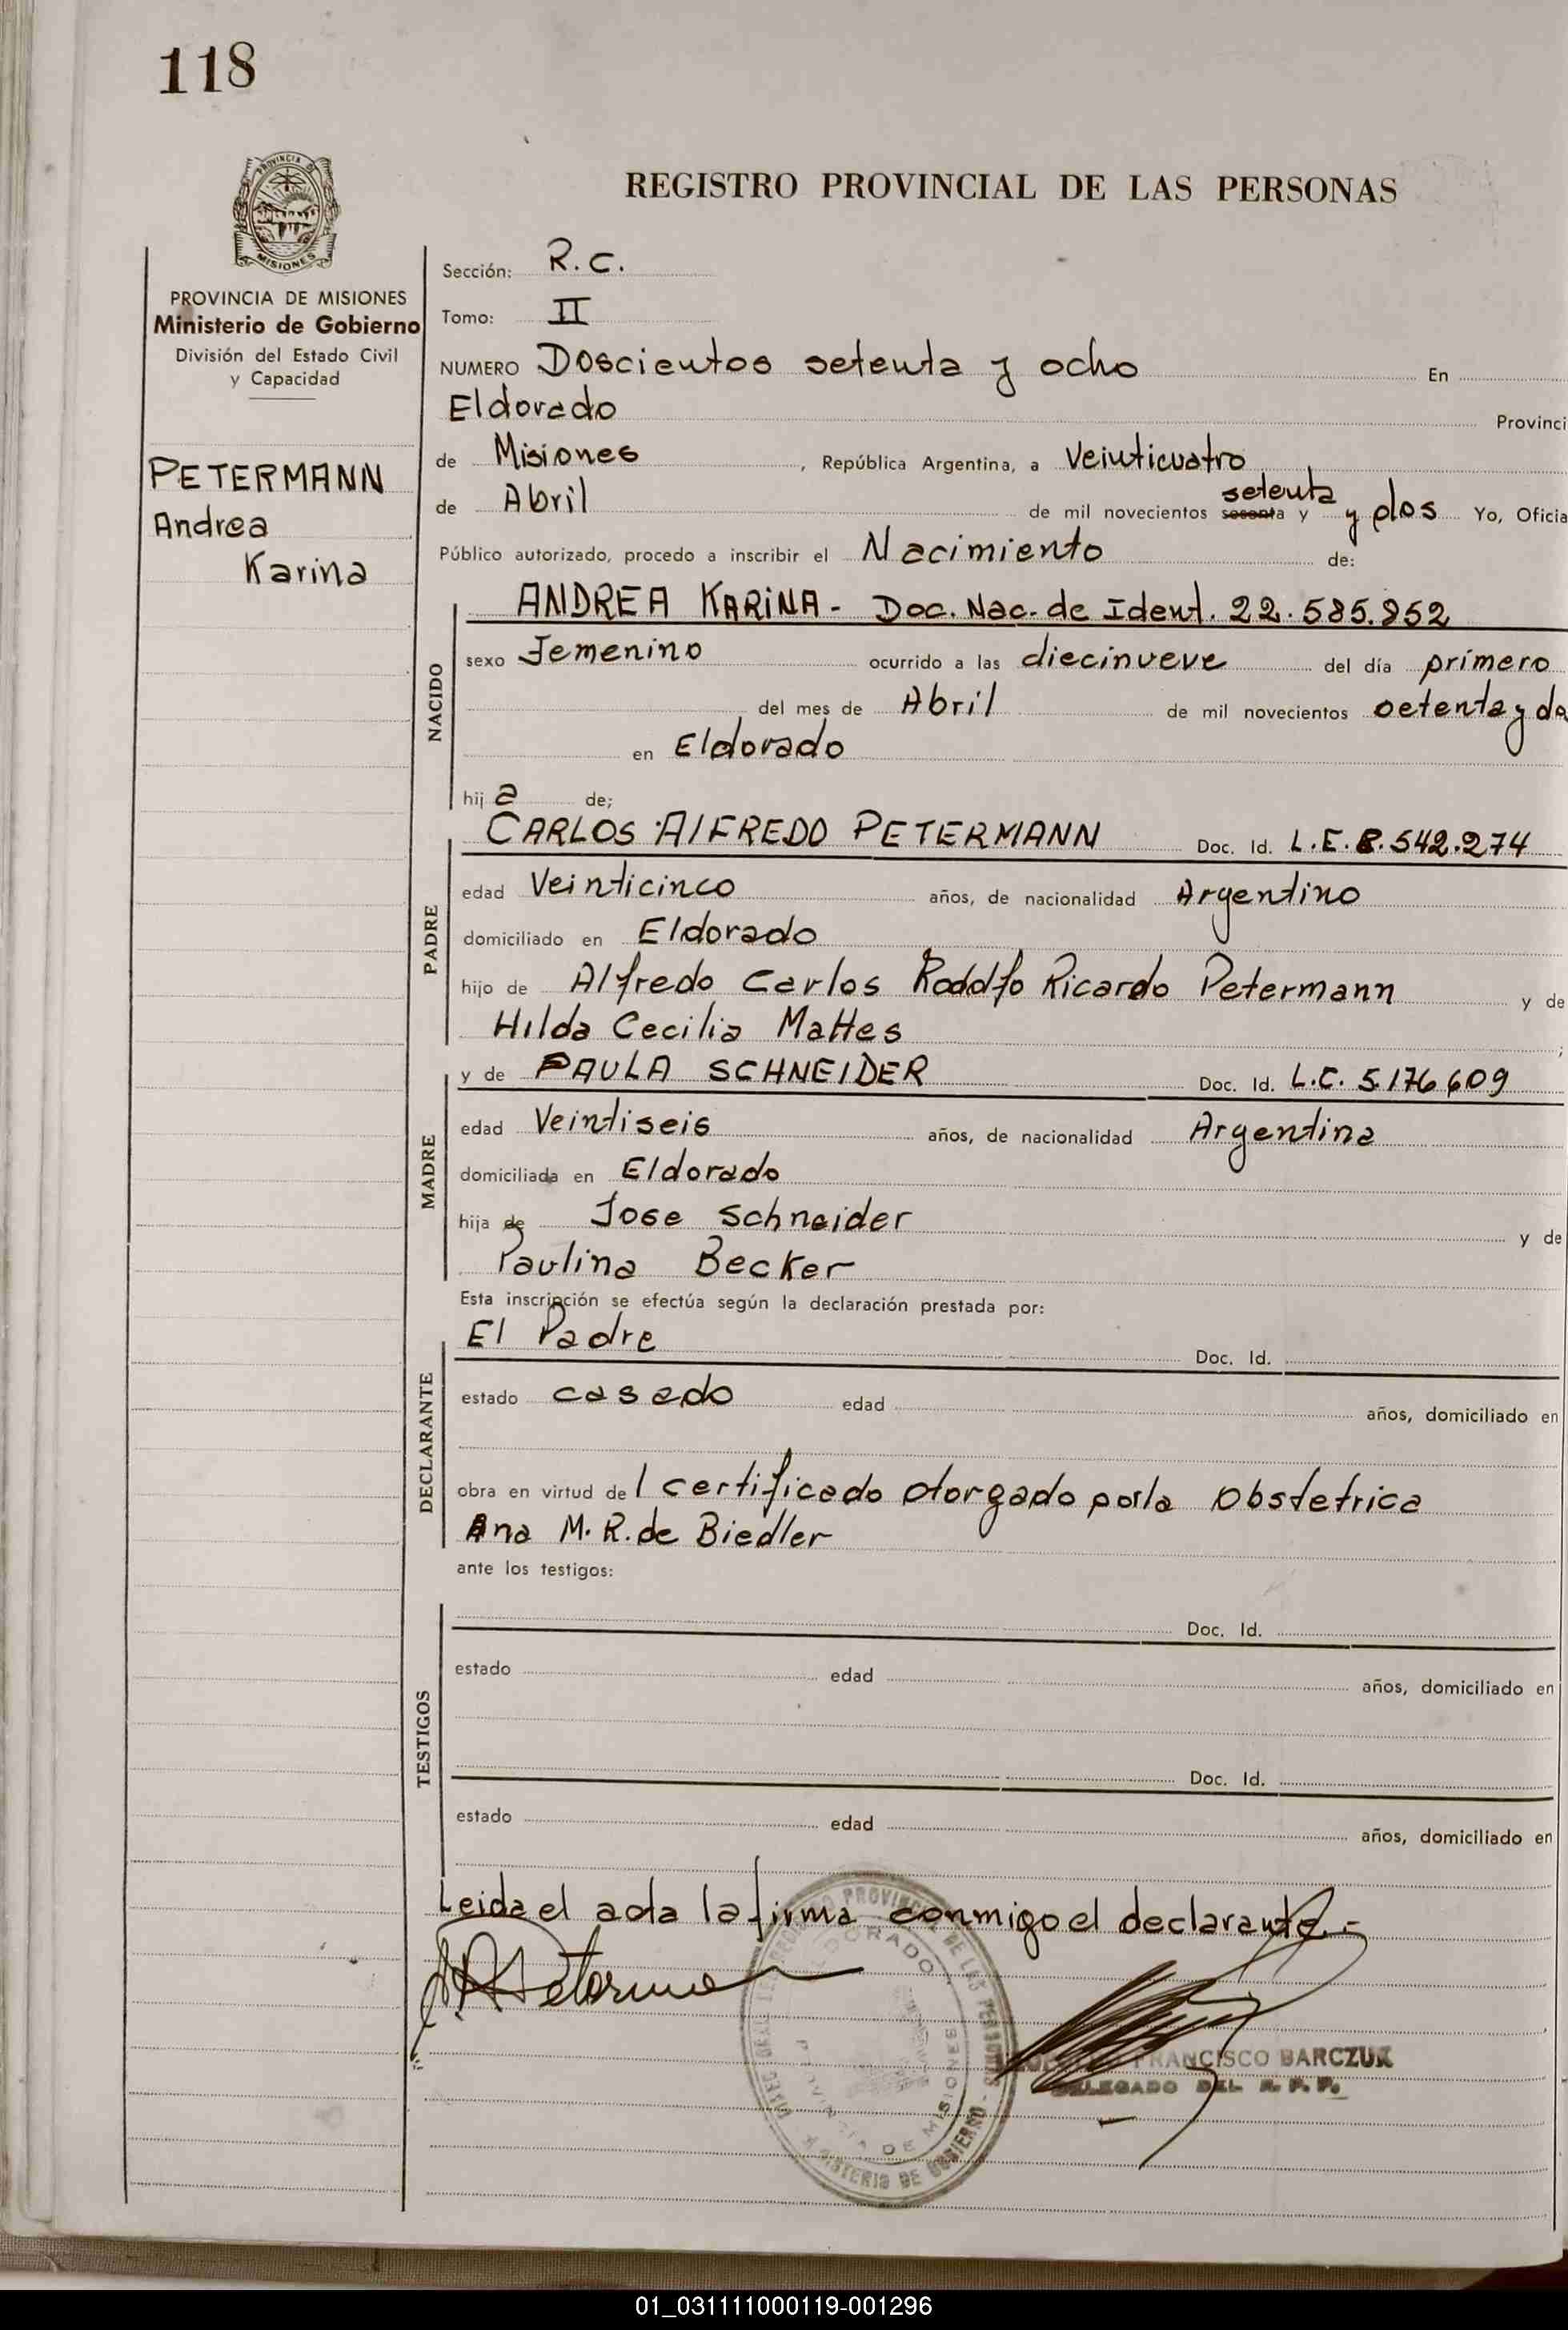 118
PROVINCIA DE
MISIONES
REGISTRO PROVINCIAL DE LAS PERSONAS
PROVINCIA DE MISIONES
Ministerio de Gobierno
División del Estado Civil
y Capacidad
PETERMANN
Andrea
Karina
Sección: R.C.
Tomo: II
NUMERO Doscientos setenta y ocho En
Eldorado Provinci
de Misiones, República Argentina, a Veinticuatro
setenta
de Abril de mil novecientos sesenta y y dos Yo, Oficia
Público autorizado, procedo a inscribir el Nacimiento de:
NACIDO
ANDREA KARINA- Doc. Nac. de Ident. 22.585.852
sexo Femenino ocurrido a las diecinueve del día primero
del mes de Abril de mil novecientos setenta y do
en Eldorado
hij a de;
PADRE
CARLOS ALFREDO PETERMANN Doc. Id. L.E. 8.542.274
edad Veinticinco años, de nacionalidad Argentino
domiciliado en Eldorado
hijo de Alfredo Carlos Rodolfo Ricardo Petermann y de
Hilda Cecilia Mattes ;
MADRE
y de PAULA SCHNEIDER Doc. Id. L.C. 5.176.609
edad Veintiseis años, de nacionalidad Argentina
domiciliada en Eldorado
hija de Jose Schneider y de
Paulina Becker
Esta inscripción se efectúa según la declaración prestada por:
DECLARANTE
El Padre Doc. Id.
estado casado edad años, domiciliado en
obra en virtud de l certificado otorgado por la Obstetrica
Ana M. R. de Biedler
ante los testigos:
TESTIGOS
Doc. Id.
estado edad años, domiciliado en
Doc. Id.
estado edad años, domiciliado en
Leida el acta la firma conmigo el declarante.-
Petermann
ELDORADO
PROVINCIA DE MISIONES
MINISTERIO DE GOBIERNO
FRANCISCO BARCZUK
DELEGADO DEL R. P. P.
01_031111000119-001296